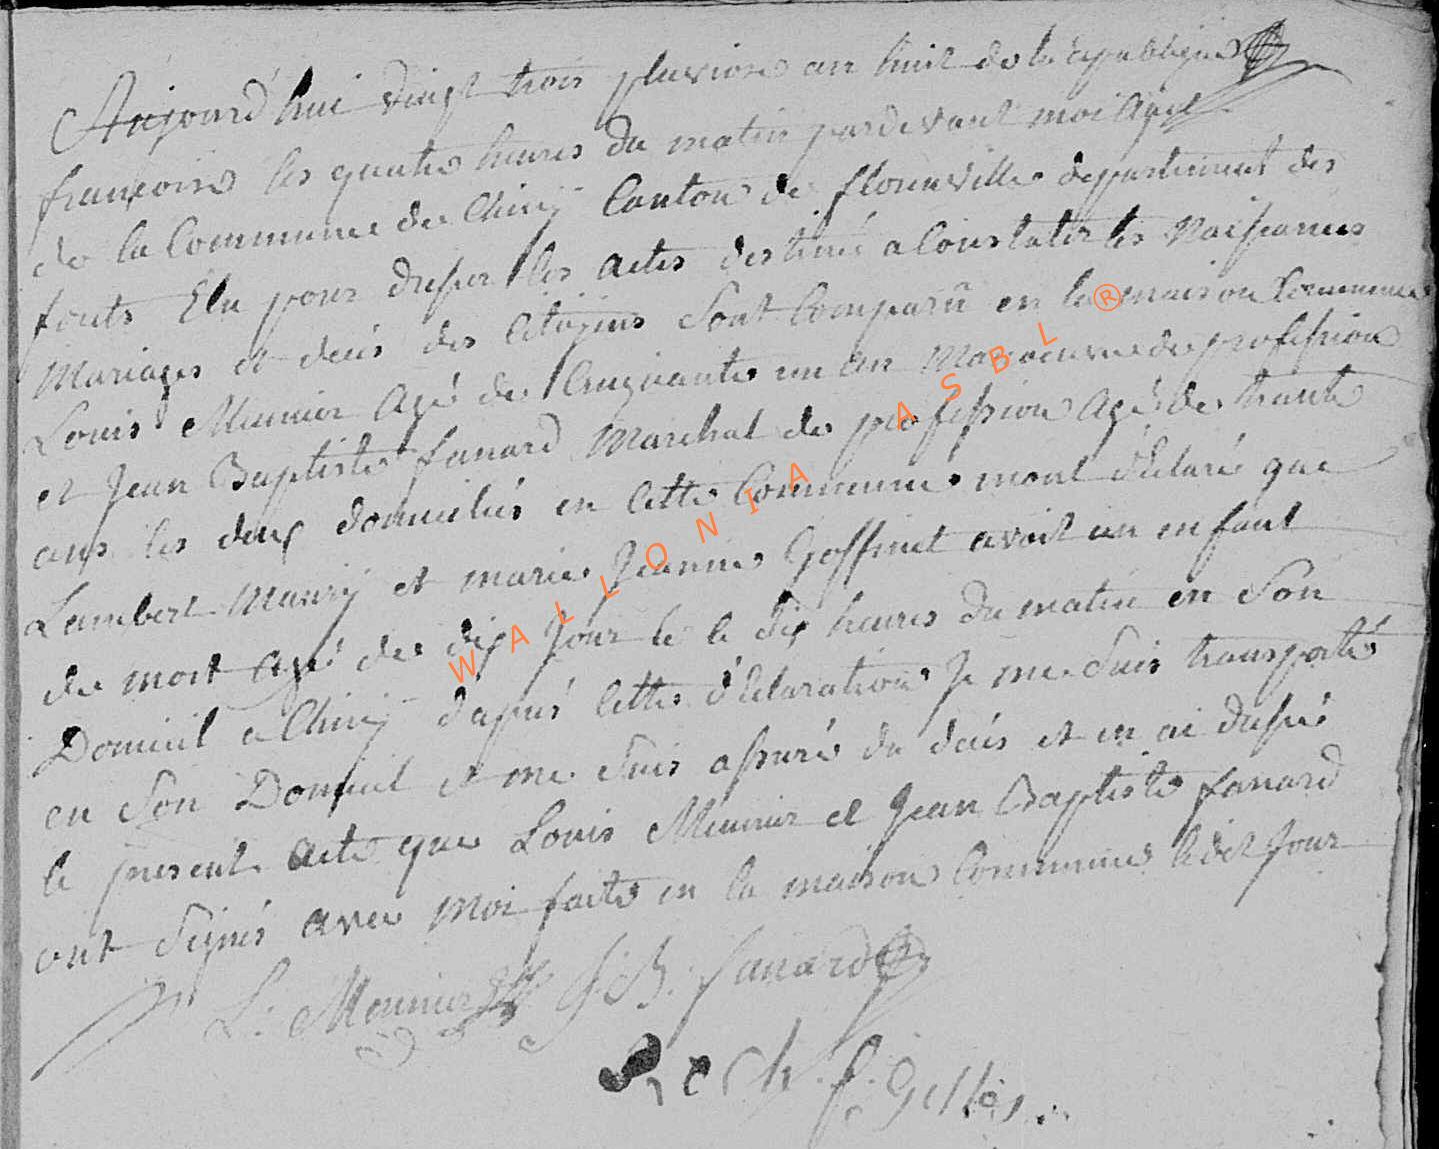 Aujourd'hui vingt trois pluviose an huit de la republique
francoise les quatre heures du matin pardevant moi agent
de la Commune de Chiny Canton de florenville departement des
forets Elu pour dresser les actes destiné a Constater les Naissances
Mariages et decés des Citoyens Sont Comparû en la maison Commune
Louis Meunier Agé de Cinquante un an Manoeuvre de profession
et Jean Baptiste fanard Marchal de profession Agé de trante
ans les deux domiciliés en Cette Commune mont déclaré que
Lambert Maury et marie Jeanne Goffinet avoit un enfant
de mort agé de dix Jour le dix heures du matin en Son
Domicil a Chiny dapué Cette déclaration Je me Suis transporté
en Son Domicil et me Suis assuré du décés et en ai dressé
le present acte que Louis Meunier et Jean Baptiste fanard
ont Signés avec moi faite en la maison Commune ledit Jour
L: Meunier J: B: fanard
f: Gilles
WALLONIA ASBL ®